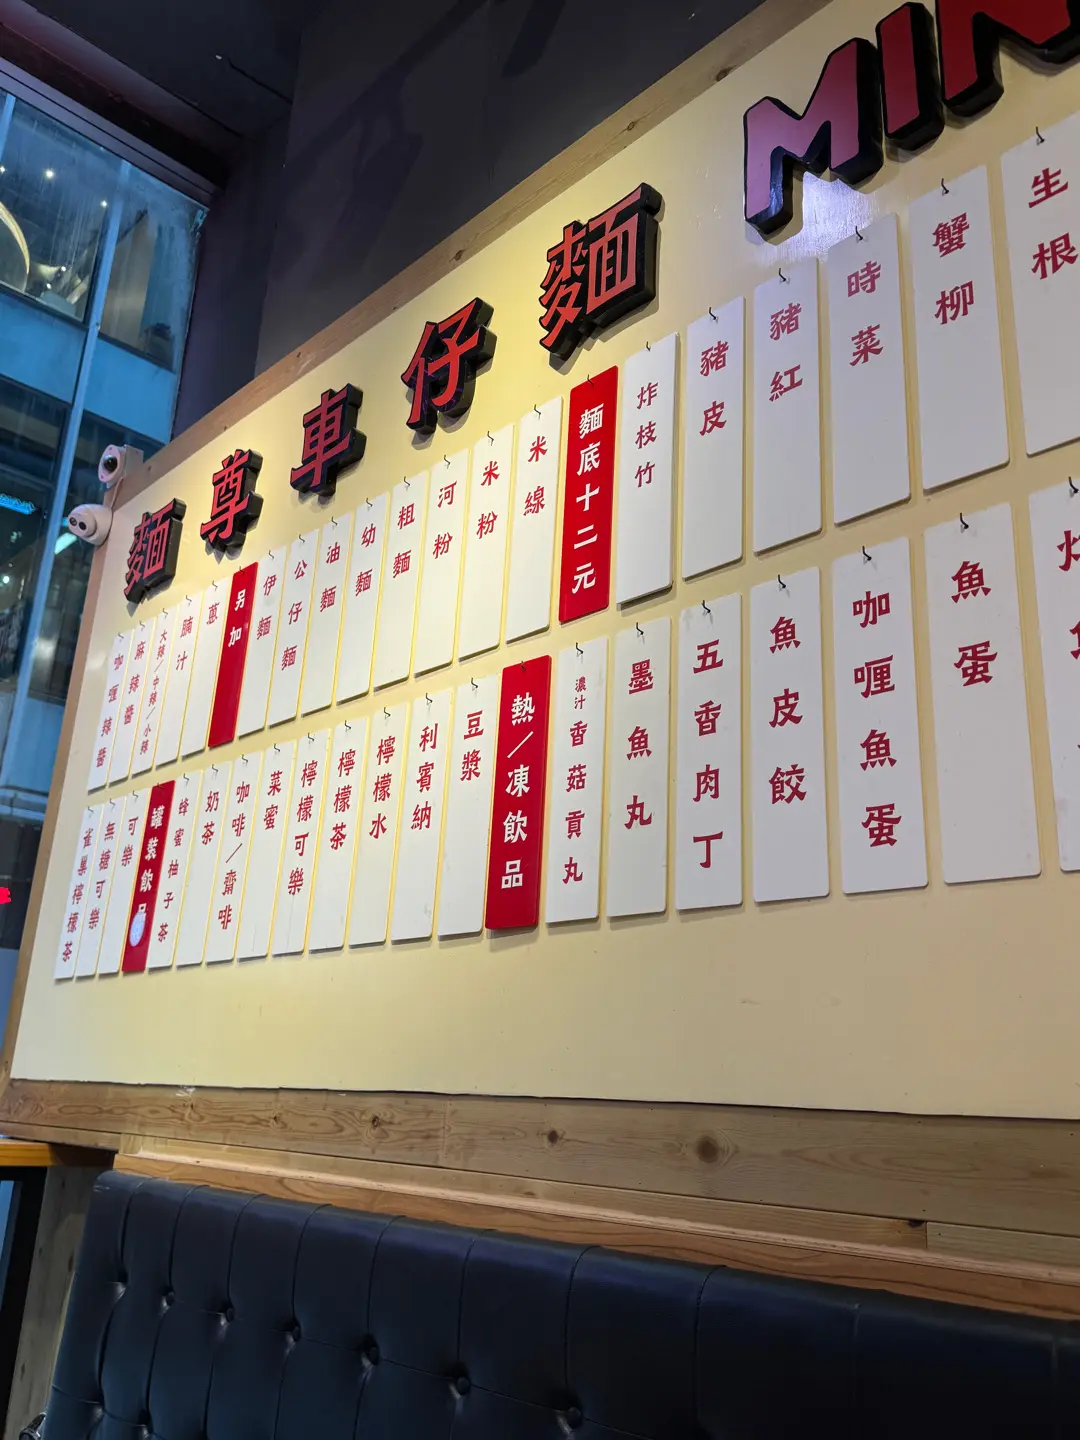 麵尊車仔麵 MIN
生根
蟹柳
時菜
豬紅
豬皮
炸枝竹
麵底十二元
米線
米粉
河粉
粗麵
幼麵
油麵
公仔麵
伊麵
另加
蔥
腩汁
大辣/中辣/小辣
麻辣醬
咖喱辣醬
魚蛋
咖喱魚蛋
魚皮餃
五香肉丁
墨魚丸
濃汁香菇貢丸
熱/凍飲品
豆漿
利賓納
檸檬水
檸檬茶
檸檬可樂
菜蜜
咖啡/齋啡
奶茶
蜂蜜柚子茶
罐裝飲品
可樂
無糖可樂
雀巢檸檬茶